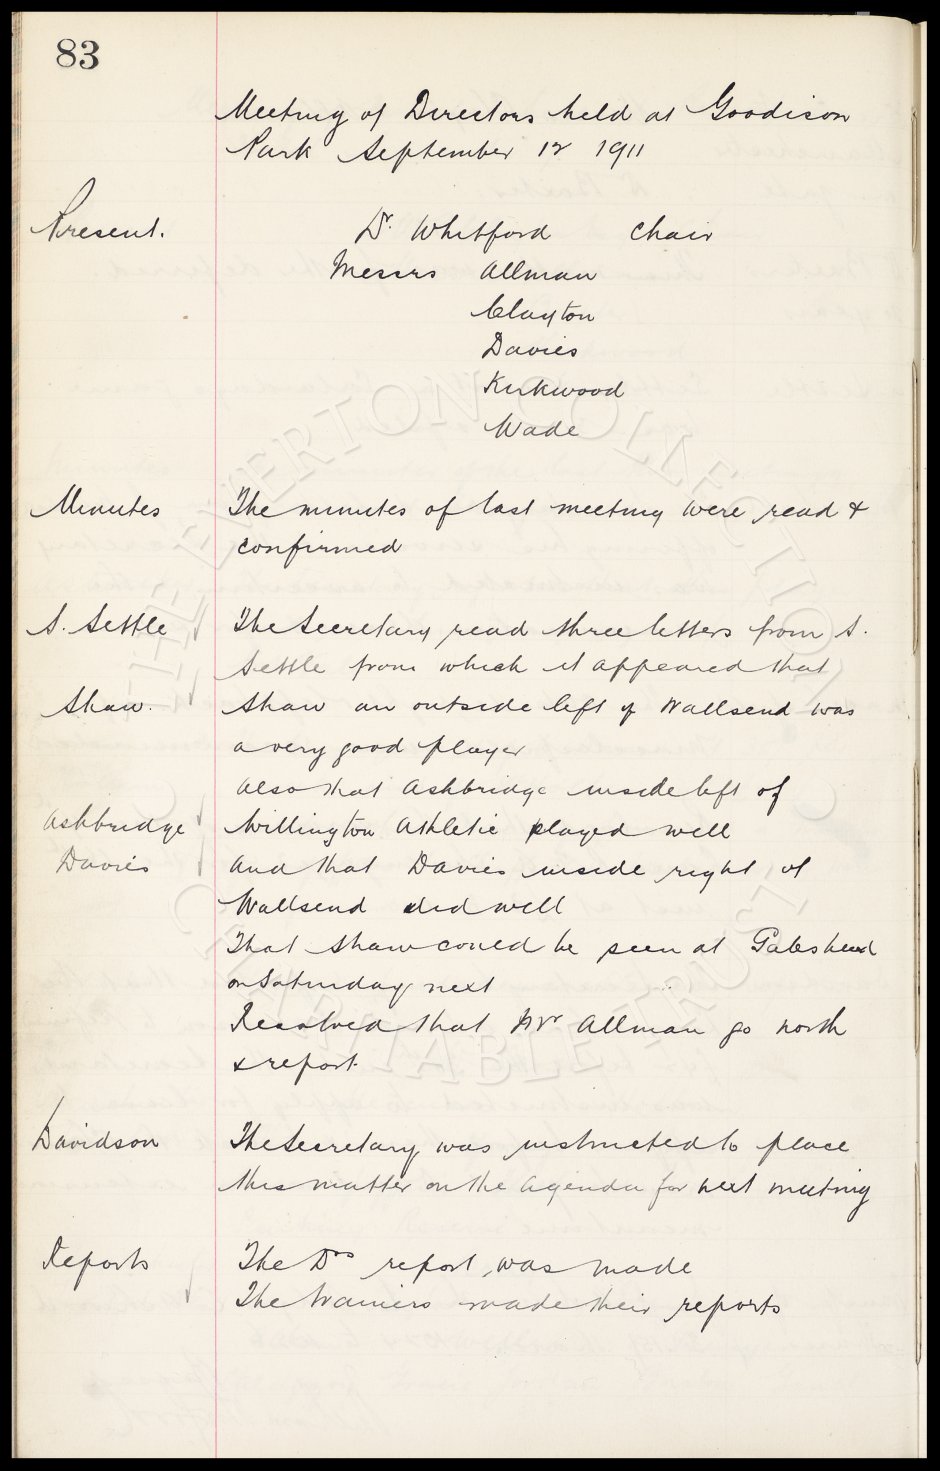 83
Meeting of Directors held at Goodison
Park September 12 1911
Present.
Dr. Whitford Chair
Messrs Allman
Clayton
Davies
Kirkwood
Wade
Minutes The minutes of last meeting were read &
confirmed
S. Settle The Secretary read three letters from S.
Settle from which it appeared that
Shaw. Shaw an outside left of Wallsend was
a very good player
also that Ashbridge inside left of
Ashbridge Willington Athletic played well
Davies and that Davies inside right of
Wallsend did well
That Shaw could be seen at Gateshead
on Saturday next
Resolved that Mr Allman go north
& report.
Davidson The Secretary was instructed to place
this matter on the Agenda for next meeting
Reports The Drs report was made
The Trainers made their reports
THE EVERTON COLLECTION
CHARITABLE TRUST